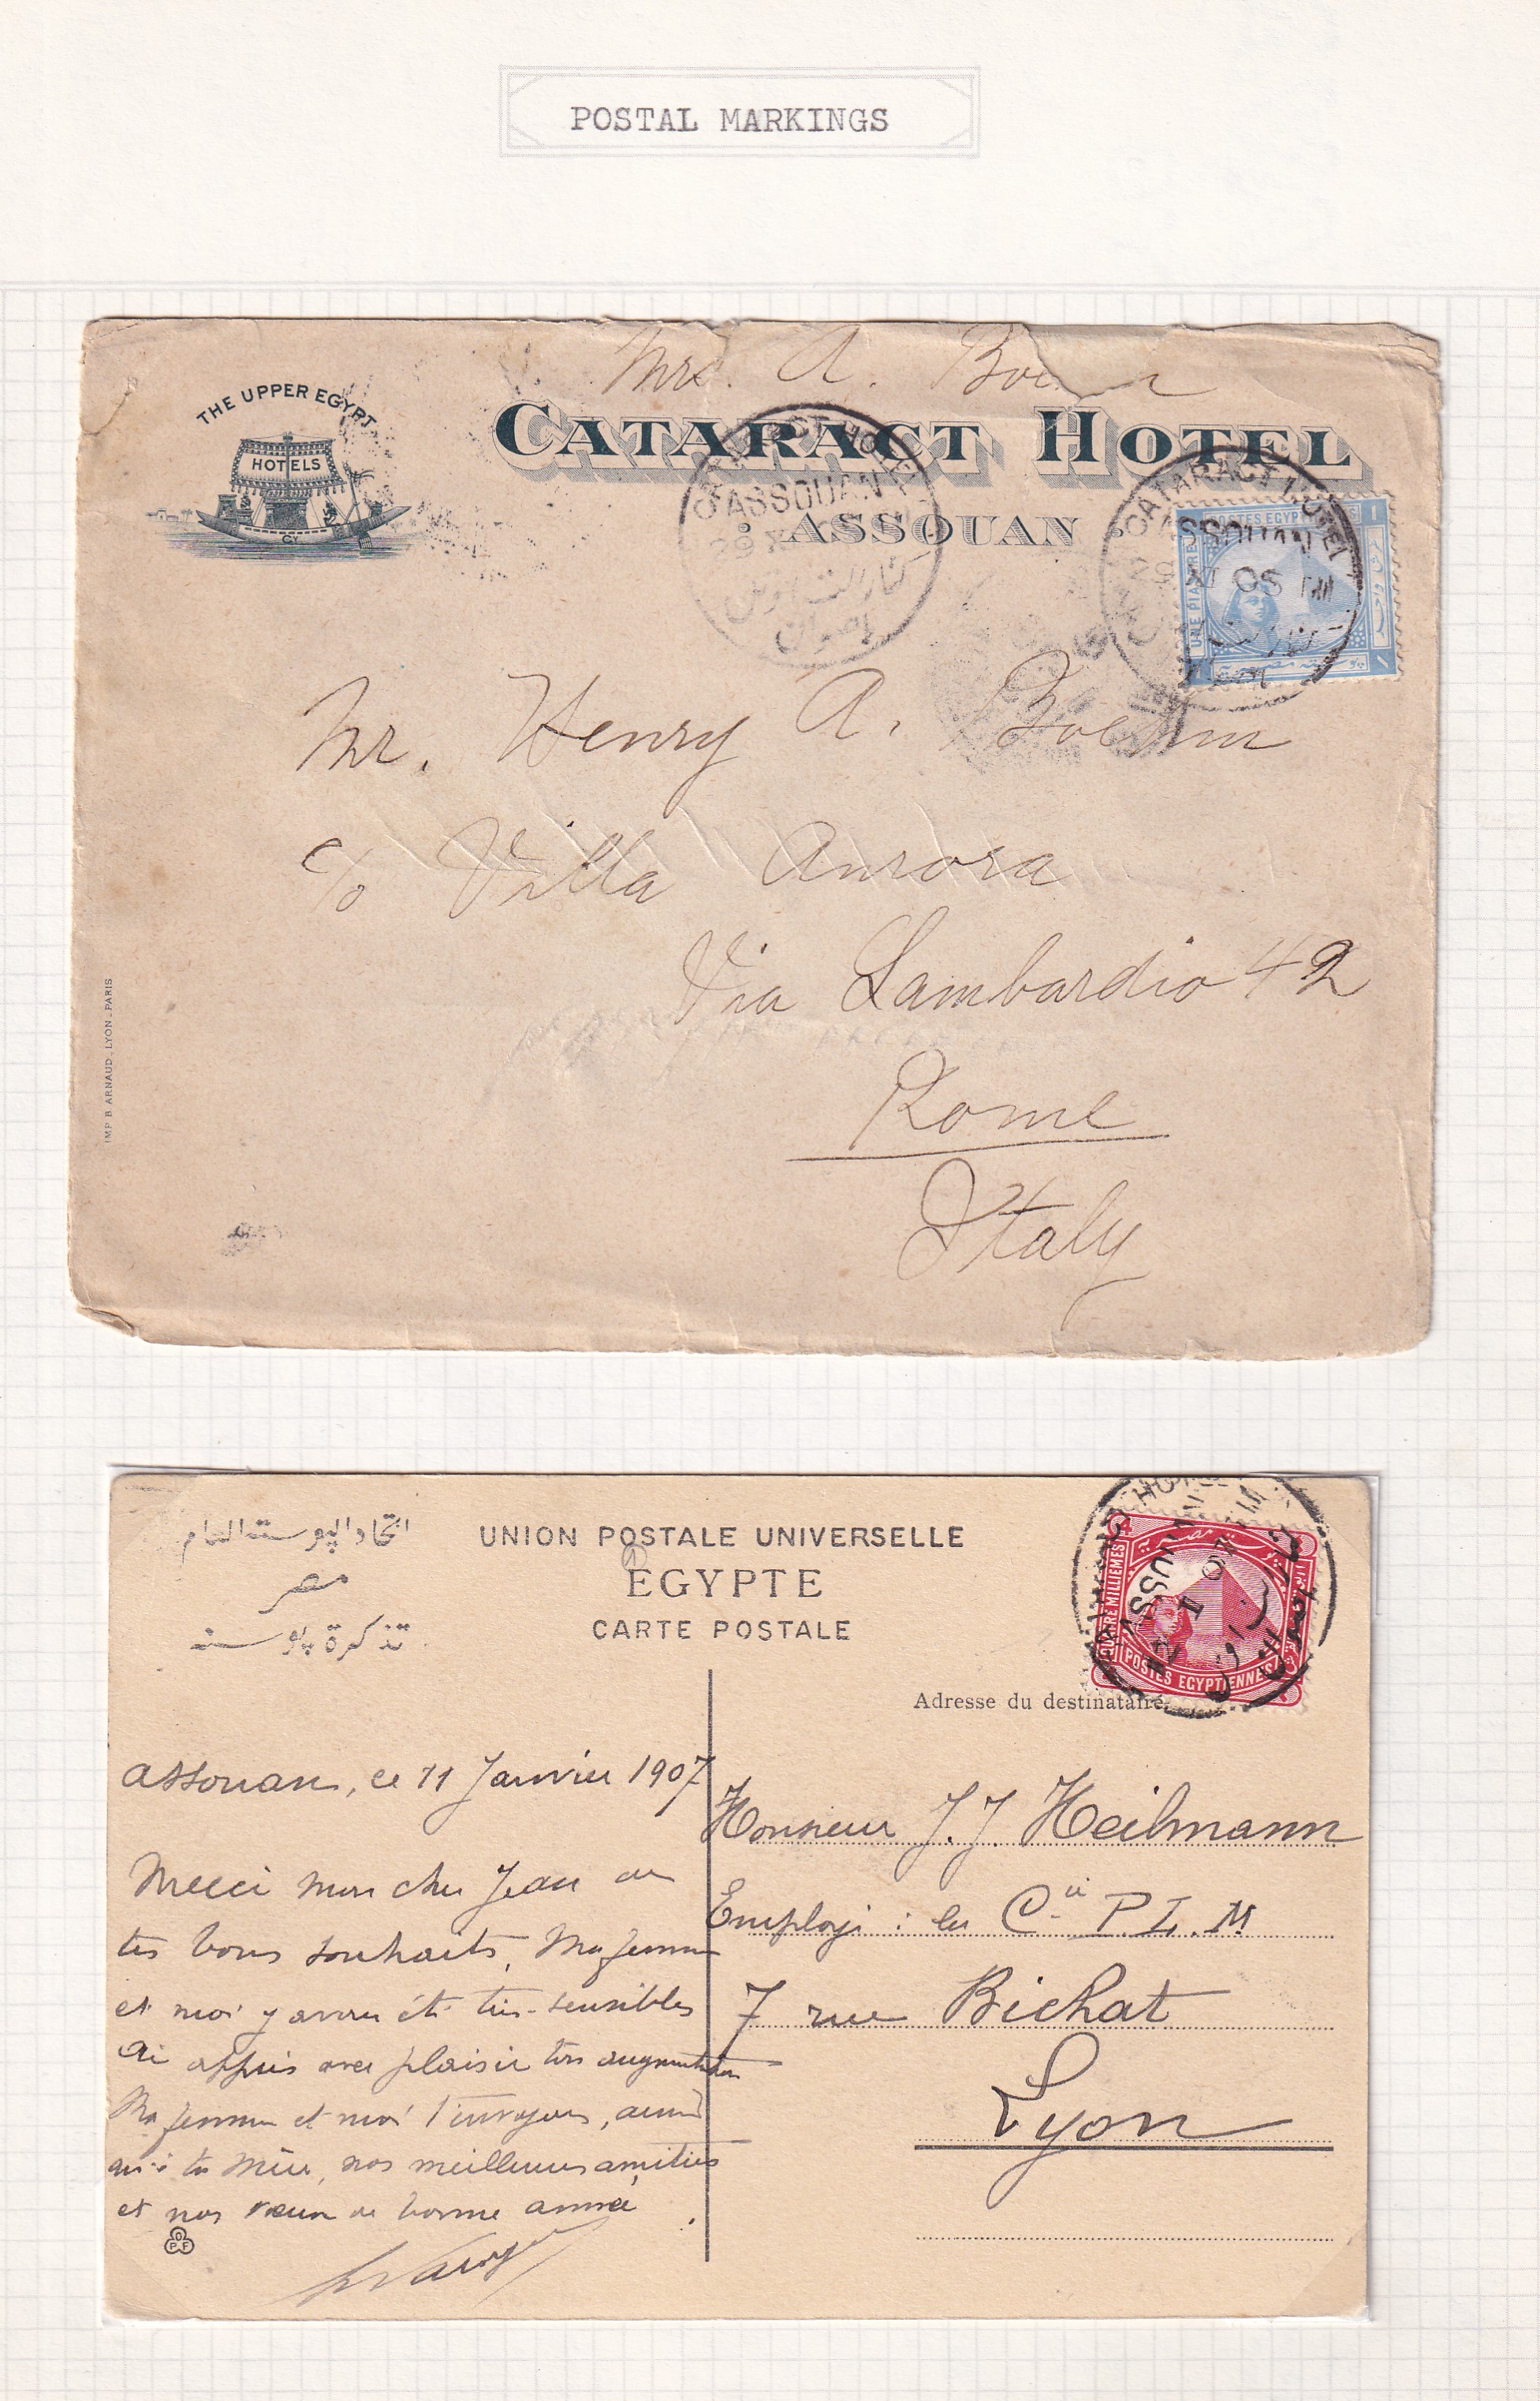 POSTAL MARKINGS
Mrs. A. Boehm
THE UPPER EGYPT
HOTELS
CY
CATARACT HOTEL
ASSOUAN
CATARACT HOTEL
ASSOUAN
29 XI
اصوان
CATARACT HOTEL
ASSOUAN
29 XI 05
POSTES EGYPTIENNES
UNE PIASTRE
بوسته مصريه
Mr. Henry A. Boehm
c/o Villa Aurora
Via Lambardio 42
Rome
Italy
IMP. B. ARNAUD. LYON - PARIS
اتحاد البوسته العام
مصر
تذكرة بوسته
UNION POSTALE UNIVERSELLE
EGYPTE
CARTE POSTALE
QUATRE MILLIEMES
POSTES EGYPTIENNES
Adresse du destinataire
Assouan, ce 11 Janvier 1907
Merci mon cher Jean de
tes bons souhaits, Ma femme
et moi y avons été très-sensibles
Ai appris avec plaisir ton augmentation
Ma femme et moi t'envoyons, ainsi
qu'à ta Mère, nos meilleures amitiés
et nos vœux de bonne année.
OPF
Monsieur J. J. Heilmann
Employé : Cie P L. M
7 rue Bichat
Lyon